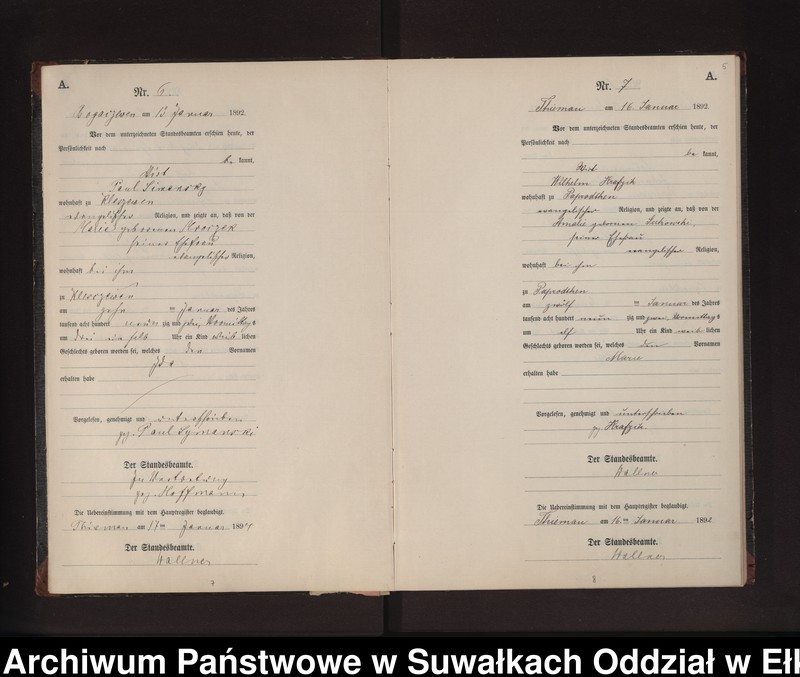 A.
Nr. 6
am 13. Januar 1892.
Vor dem unterzeichneten Standesbeamten erschien heute, der
Persönlichkeit nach
be kannt,
Paul Simansky
wohnhaft zu
evangelischer Religion, und zeigte an, daß von der
geborenen
seiner Ehefrau
evangelischer Religion,
wohnhaft bei ihm
zu
am zehn ten Januar des Jahres
tausend acht hundert neunzig und zwei, Vormittags
um drei ein halb Uhr ein Kind weib lichen
Geschlechts geboren worden sei, welches den Vornamen
Ida
erhalten habe
Vorgelesen, genehmigt und unterschrieben
gez. Paul Symanski
Der Standesbeamte.
In Vertretung
gez. Hoffmann
Die Uebereinstimmung mit dem Hauptregister beglaubigt.
am 17ten Januar 1892
Der Standesbeamte.
Wallner
7
A.
Nr. 7
Thieman am 16. Januar 1892.
Vor dem unterzeichneten Standesbeamten erschien heute, der
Persönlichkeit nach
be kannt,
Wilhelm
wohnhaft zu Paprodtken
evangelischer Religion, und zeigte an, daß von der
Amalie geborenen
seiner Ehefrau
evangelischer Religion,
wohnhaft bei ihm
zu Paprodtken
am zwölf ten Januar des Jahres
tausend acht hundert neunzig und zwei, Vormittags
um elf Uhr ein Kind weib lichen
Geschlechts geboren worden sei, welches den Vornamen
Marie
erhalten habe
Vorgelesen, genehmigt und unterschrieben
gz
Der Standesbeamte.
Wallner
Die Uebereinstimmung mit dem Hauptregister beglaubigt.
Thieman am 16ten Januar 1892
Der Standesbeamte.
Wallner
8
Archiwum Państwowe w Suwałkach Oddział w Ełk